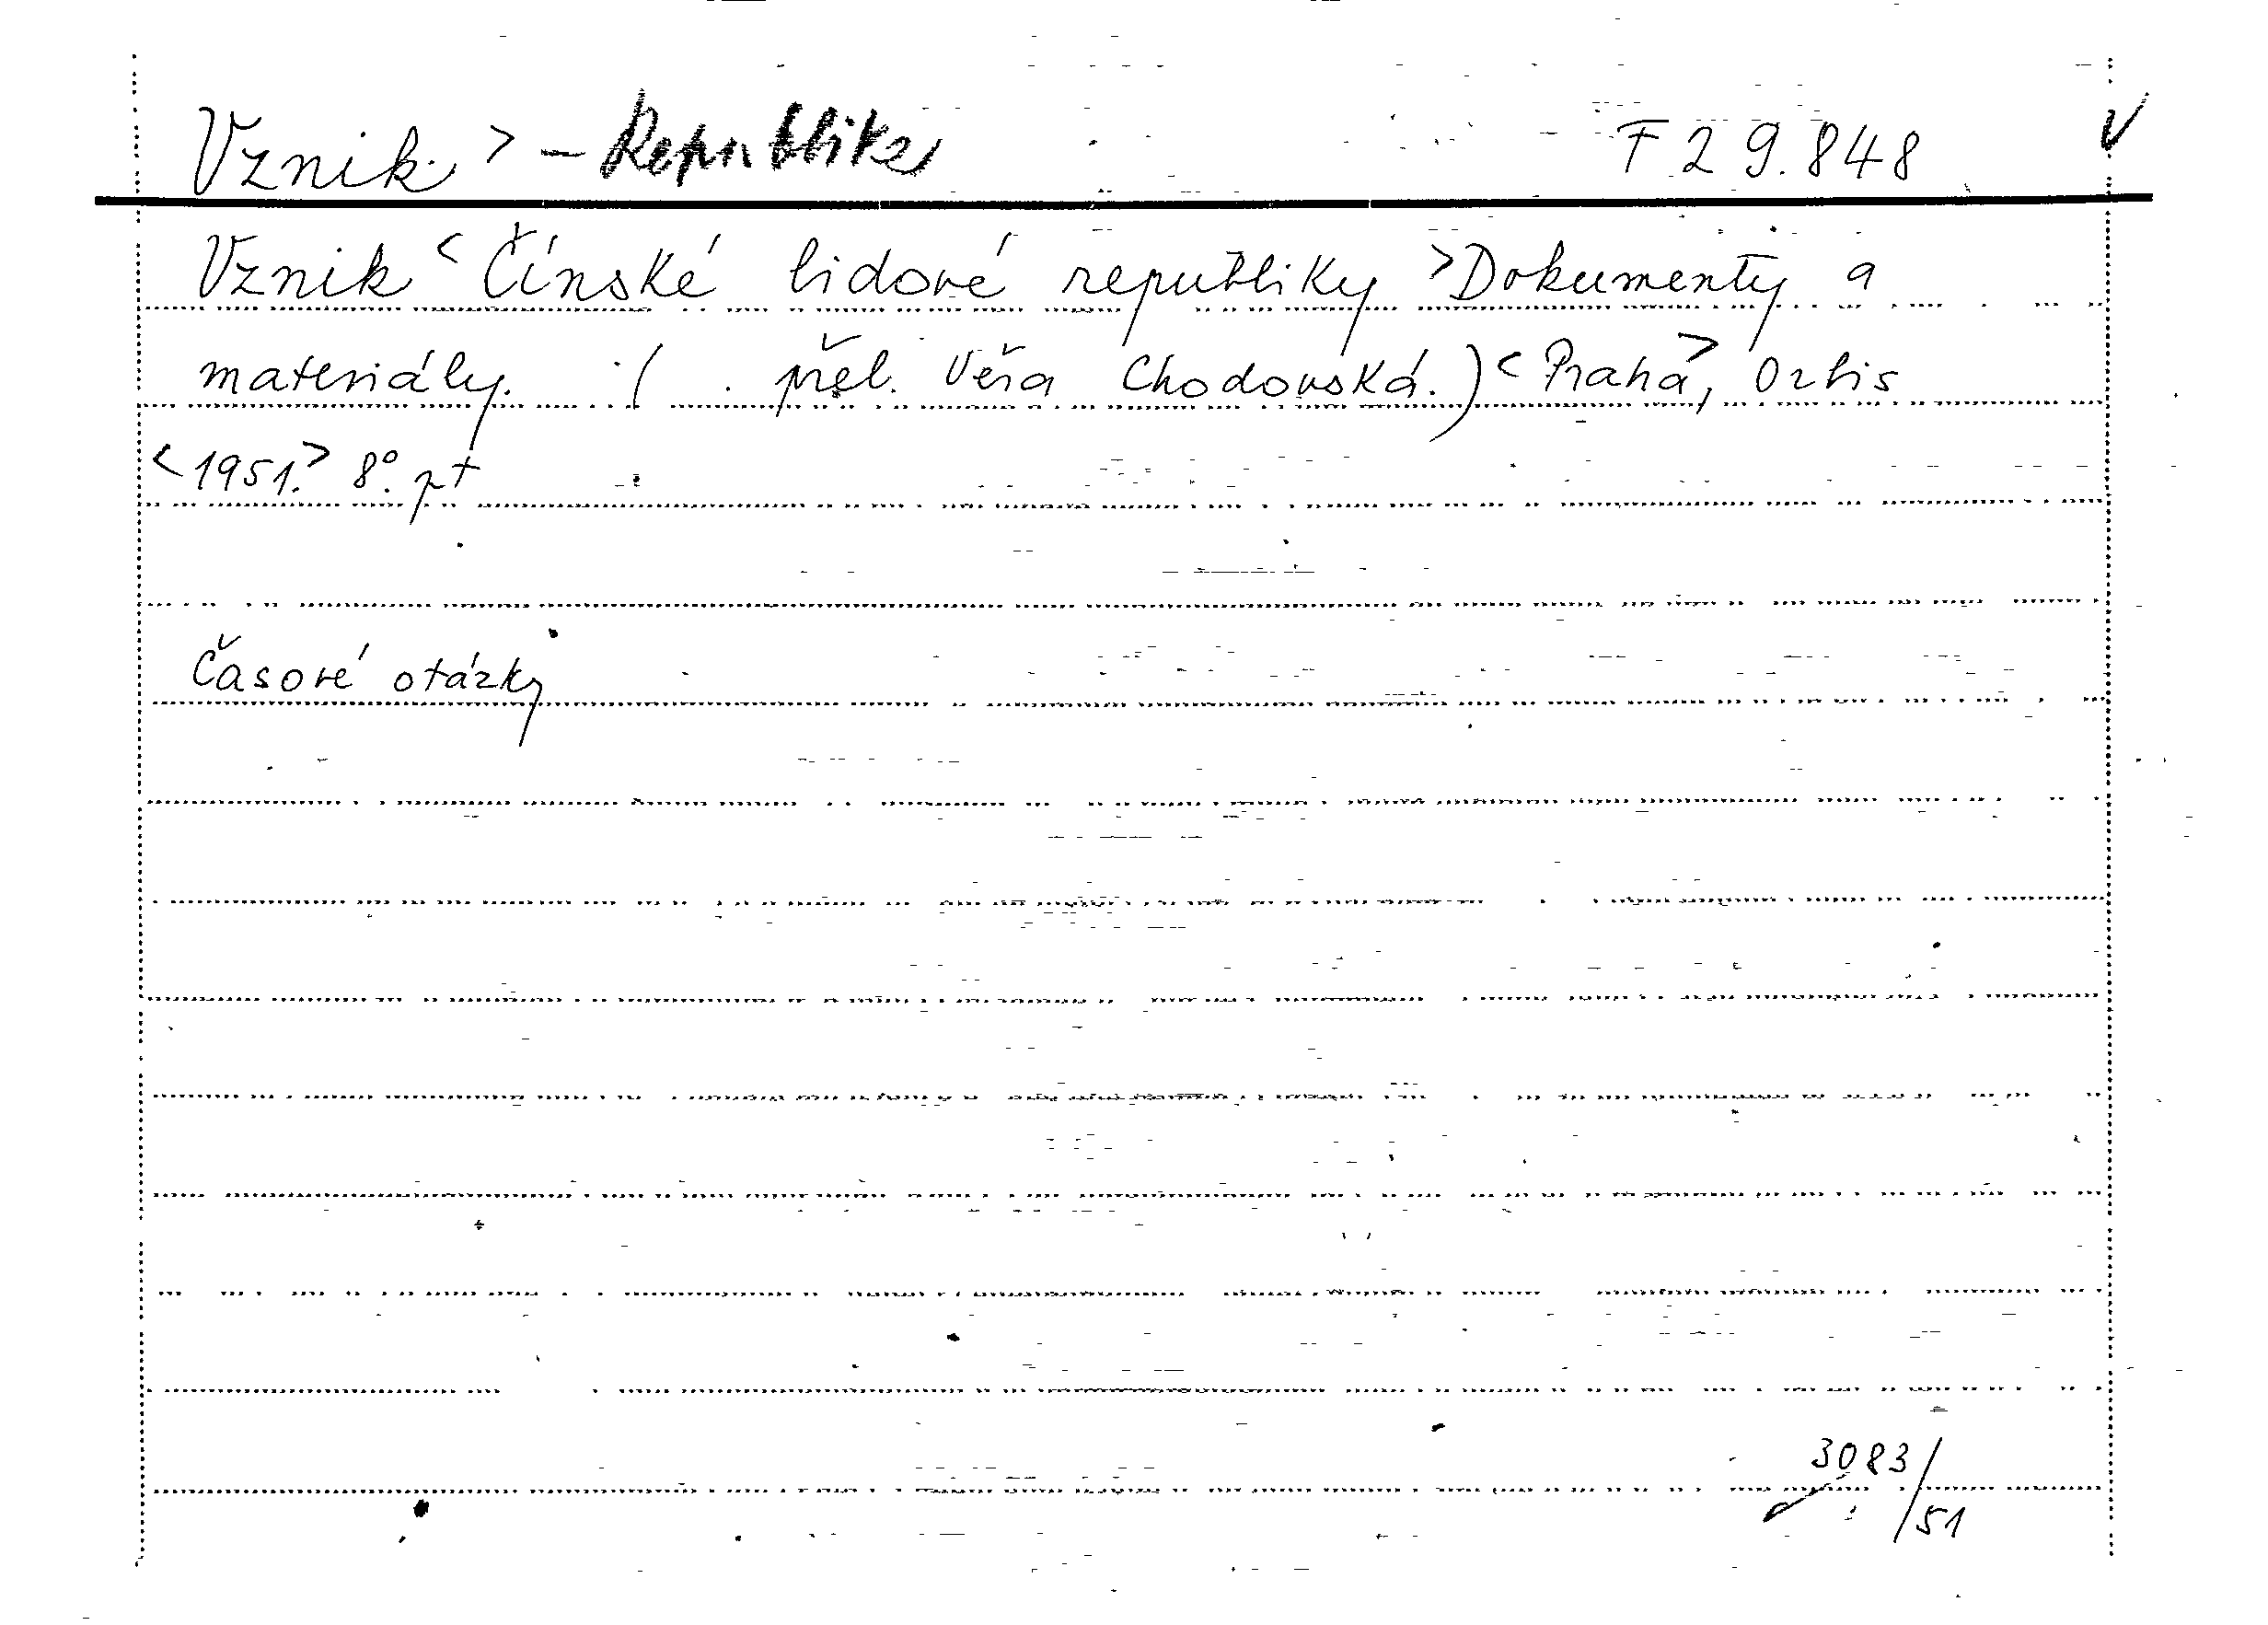 Vznik > - Republika F 29.848 V
Vznik < Čínské lidové republiky > Dokumenty a
materiály. ( . přel. Věra Chodovská.) < Praha >, Orbis
< 1951. > 8°. pt
Časové otázky
3083/
51